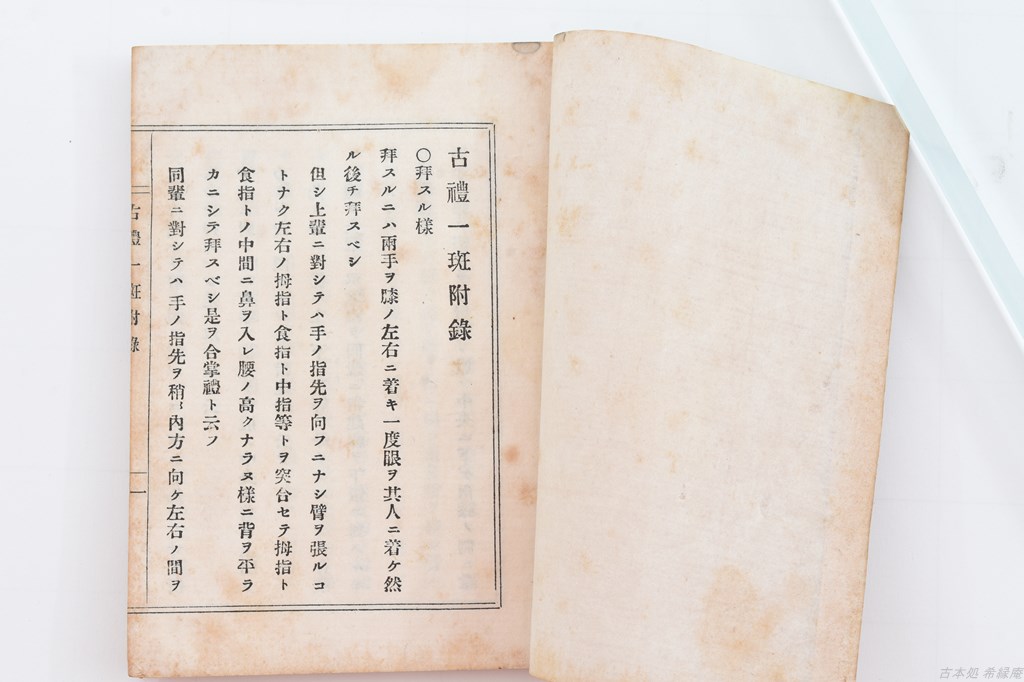 古禮一斑附錄
〇拜スル樣
拜スルニハ兩手ヲ膝ノ左右ニ着キ一度眼ヲ其人ニ着ケ然
ル後チ拜スベシ
但シ上輩ニ對シテハ手ノ指先ヲ向フニナシ臂ヲ張ルコ
トナク左右ノ拇指ト食指ト中指等トヲ突合セテ拇指ト
食指トノ中間ニ鼻ヲ入レ腰ノ高クナラヌ樣ニ背ヲ平ラ
カニシテ拜スベシ是ヲ合掌禮ト云フ
同輩ニ對シテハ手ノ指先ヲ稍〻內方ニ向ケ左右ノ間ヲ
古禮一斑附錄
一
古本処 希縁庵